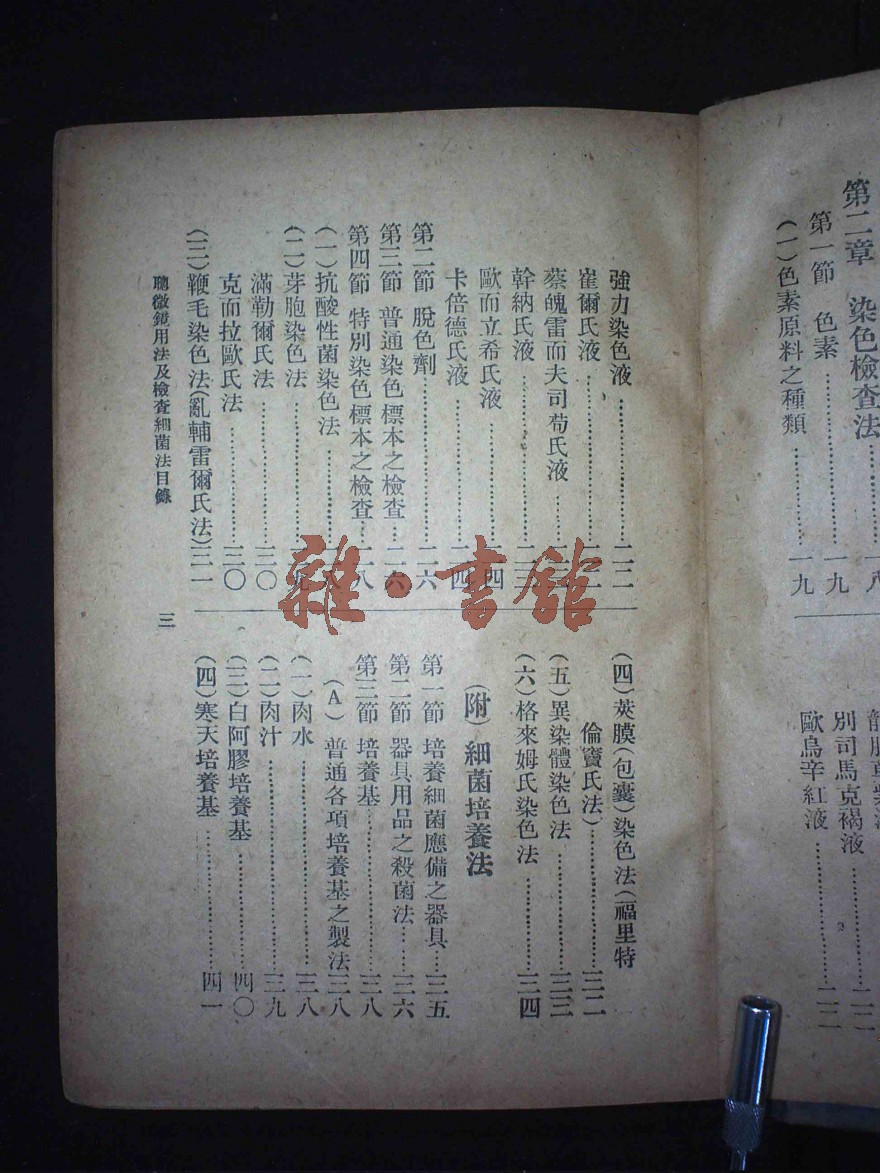 第二章 染色檢查法……一八
第一節 色素……一九
(一)色素原料之種類……一九
別司馬克褐液……二二
歐烏辛紅液……二二
強力染色液……二二
崔爾氏液……二二
蔡魄雷而夫司荀氏液……
幹納氏液……二三
歐而立希氏液……二四
卡倍德氏液……二四
第二節 脫色劑……二六
第三節 普通染色標本之檢查…二六
第四節 特別染色標本之檢查…二八
(一)抗酸性菌染色法……二八
(二)芽胞染色法……二九
滿勒爾氏法……三〇
克而拉歐氏法……三〇
(三)鞭毛染色法(亂輔雷爾氏法)三一
(四)莢膜(包囊)染色法(福里特
倫竇氏法)……三二
(五)異染體染色法……三三
(六)格來姆氏染色法……三四
(附)細菌培養法
第一節 培養細菌應備之器具…三五
第二節 器具用品之殺菌法……三六
第三節 培養基……三八
(A)普通各項培養基之製法…三八
(一)肉水……三八
(二)肉汁……三九
(三)白阿膠培養基……四〇
(四)寒天培養基……四一
顯微鏡用法及檢查細菌法目錄
三
雜·書館